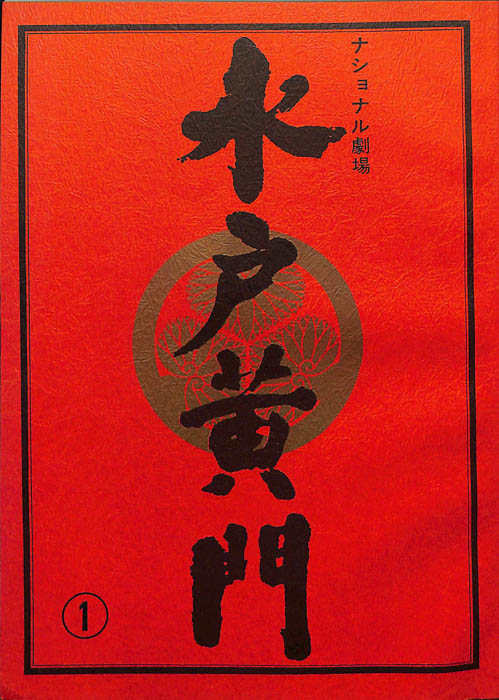 ナショナル劇場
水戸黄門
①